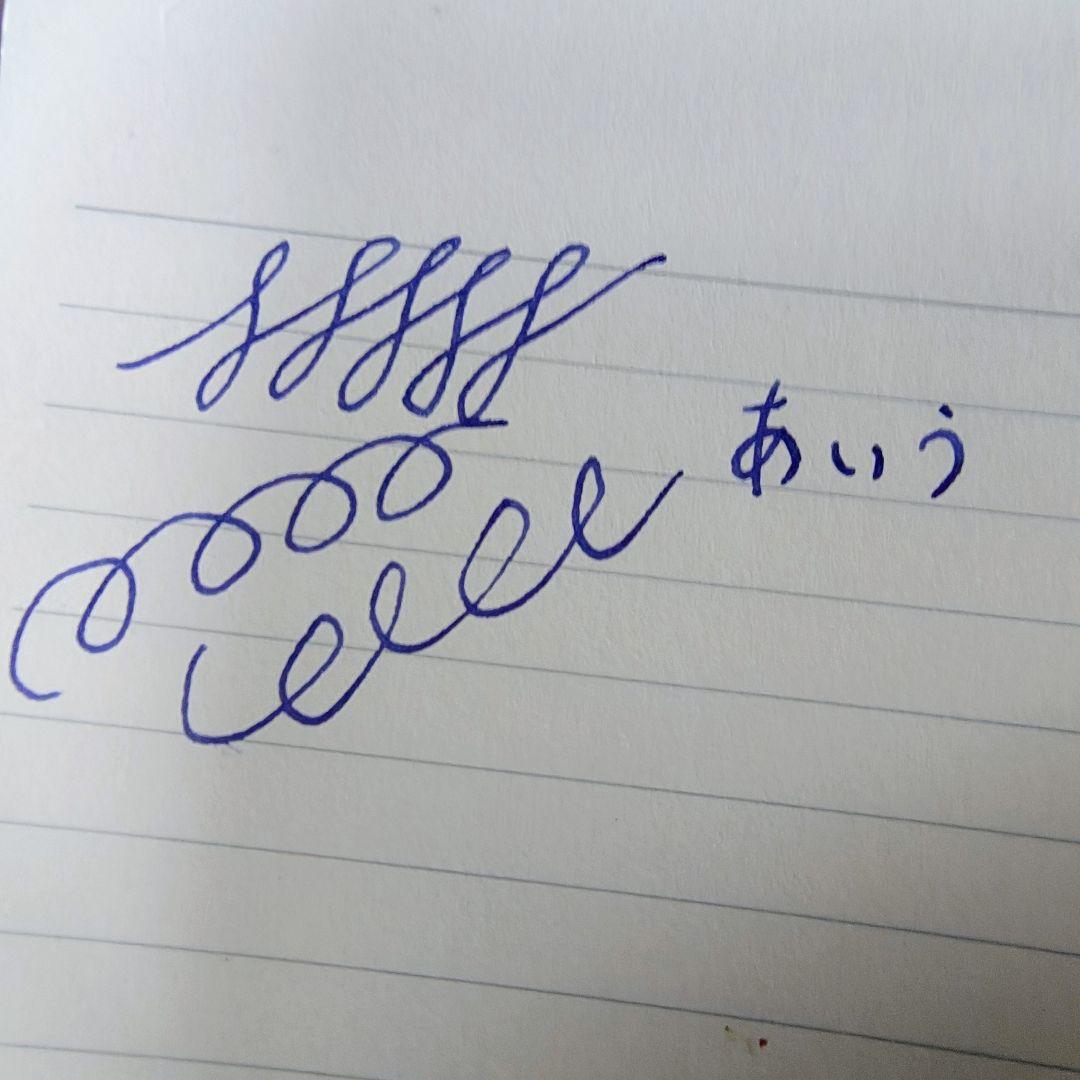 あいう